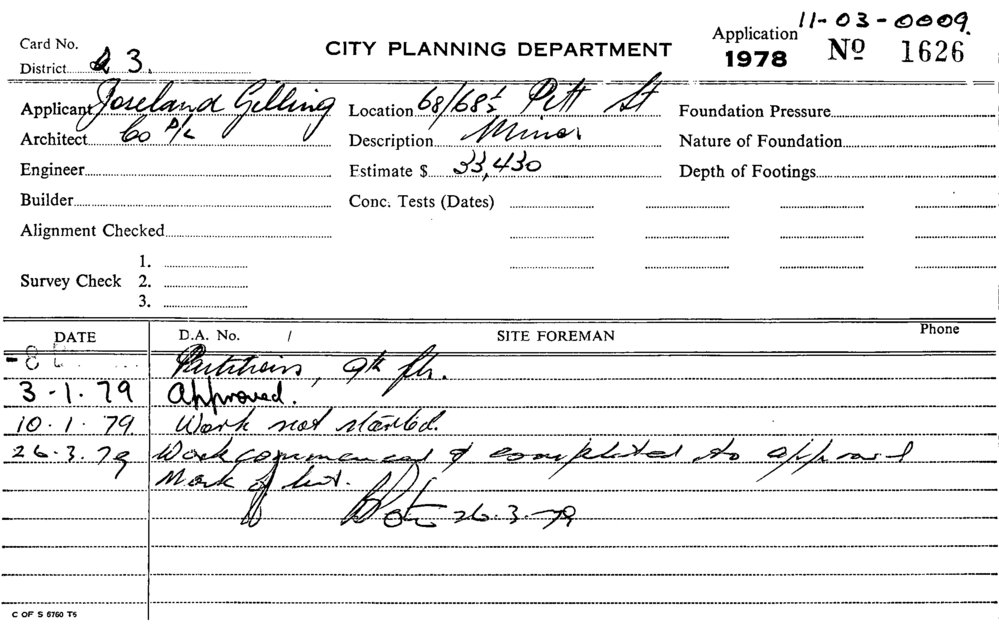 11-03-0009.
Card No. CITY PLANNING DEPARTMENT Application 1978 Nº 1626
District 3.
Applicant Joseland Gilling Location 68/68½ Pitt St Foundation Pressure
Architect Co P/L Description Minor Nature of Foundation
Engineer Estimate $ 33,430 Depth of Footings
Builder Conc. Tests (Dates)
Alignment Checked
1.
Survey Check 2.
3.
DATE D.A. No. / SITE FOREMAN Phone
Partitions, 9th flr.
3-1.79 Approved.
10.1.79. Work not started.
26.3.79 Work commenced & completed to approval
26.3.79
C OF S 6760 T5